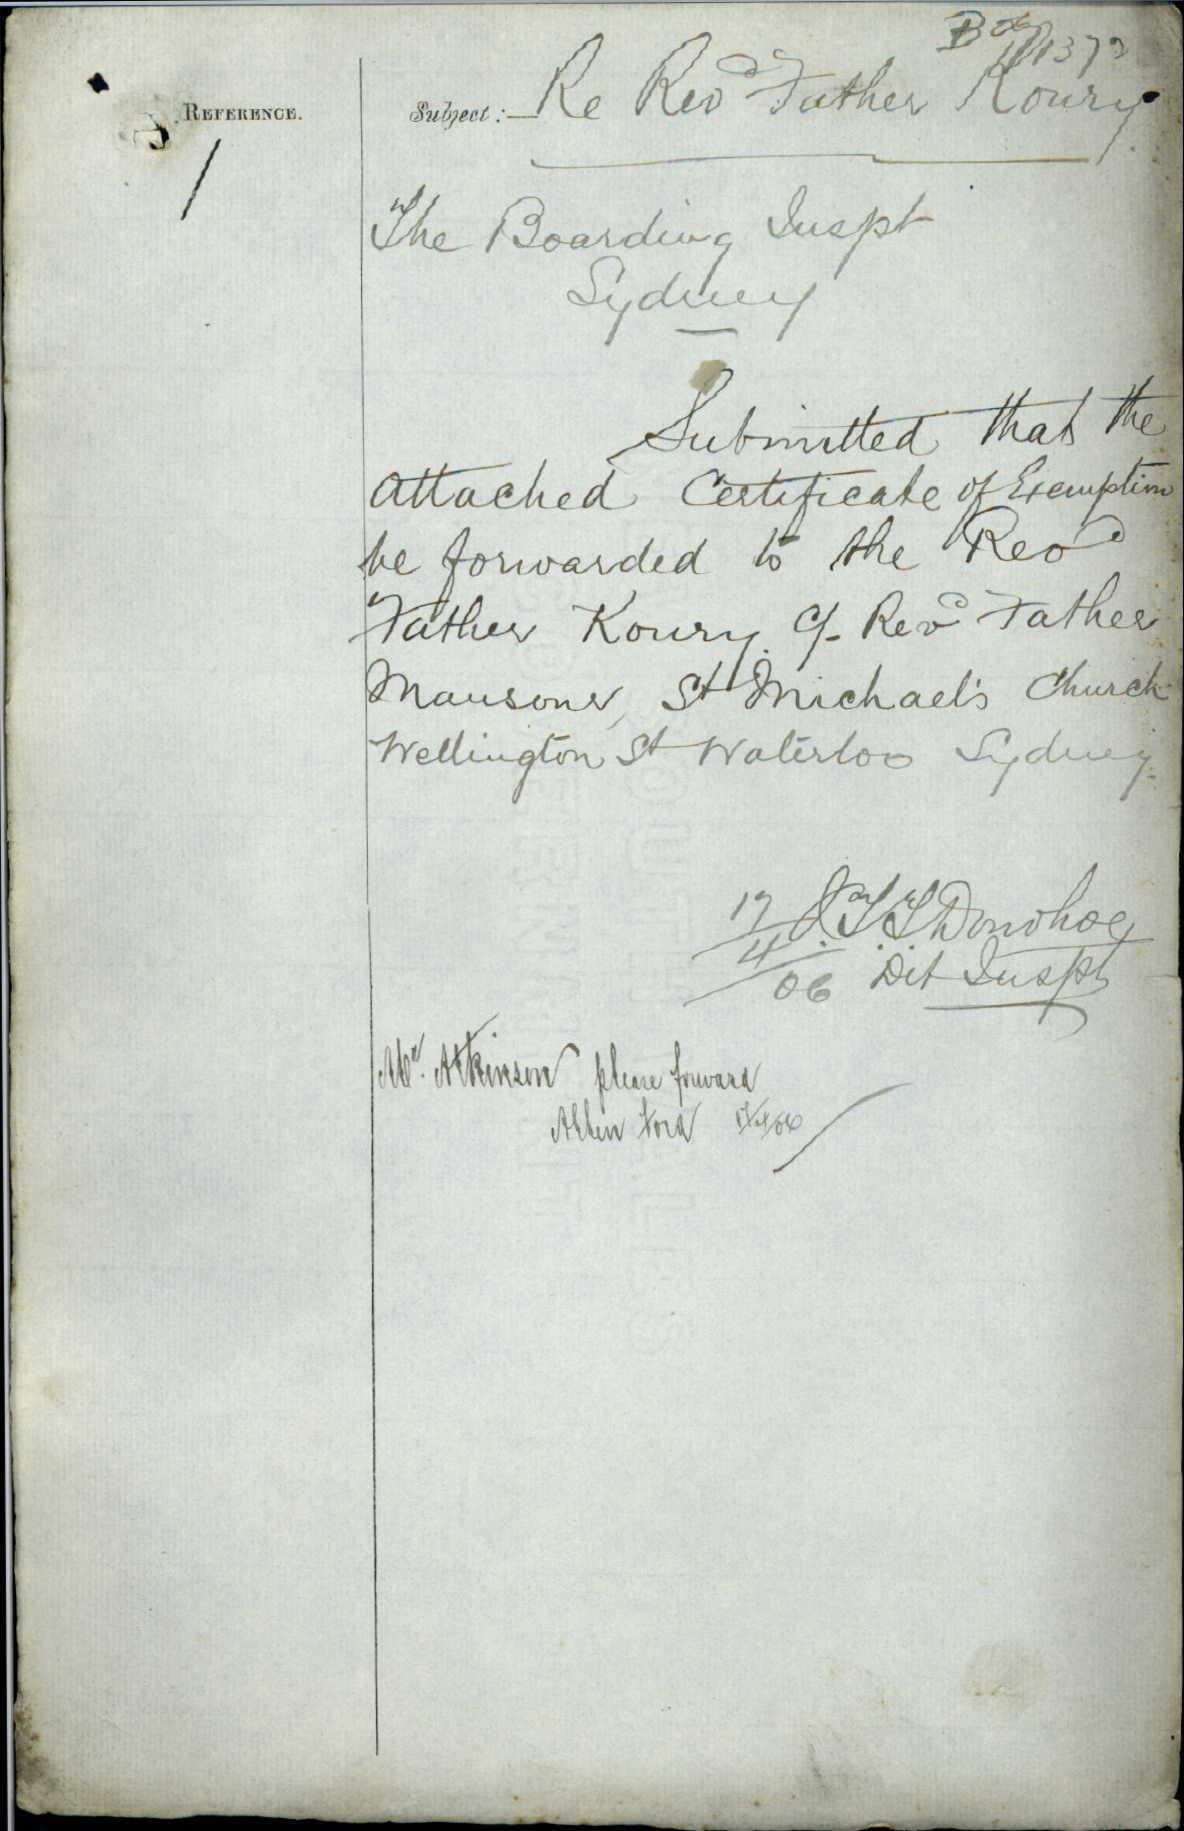 B 06/1373
REFERENCE.
Subject:— Re Revd Father Koury.
1
The Boarding Inspt
Sydney
Submitted that the
attached Certificate of Exemption
be forwarded to the Revd
Father Koury. C/- Revd Father
Mansons, St Michael's Church
Wellington St Waterloo Sydney.
17/4/06 J.T.T. Donohoe
Det Inspt
Mr. Atkinson please forward
Allen Ford 17/4/06
SOUTH WALES
GOVERNMENT